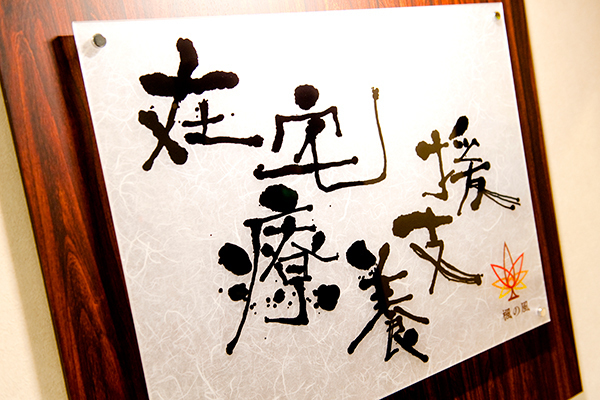 在宅
療養
支援
楓の風